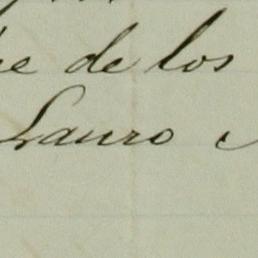 de los
Lauro